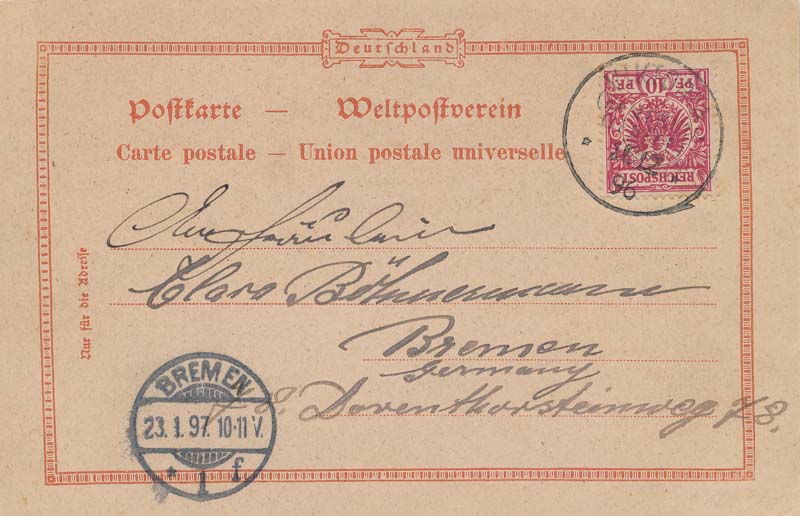 Deutschland
Postkarte — Weltpostverein
Carte postale — Union postale universelle
10
PF. PF.
REICHSPOST
12
96
An Fräulein
Clara Böhnermann
Bremen
Germany
Doventhorsteinweg 78.
Nur für die Adresse
BREMEN
23.1.97. 10-11 V.
* 1 f.